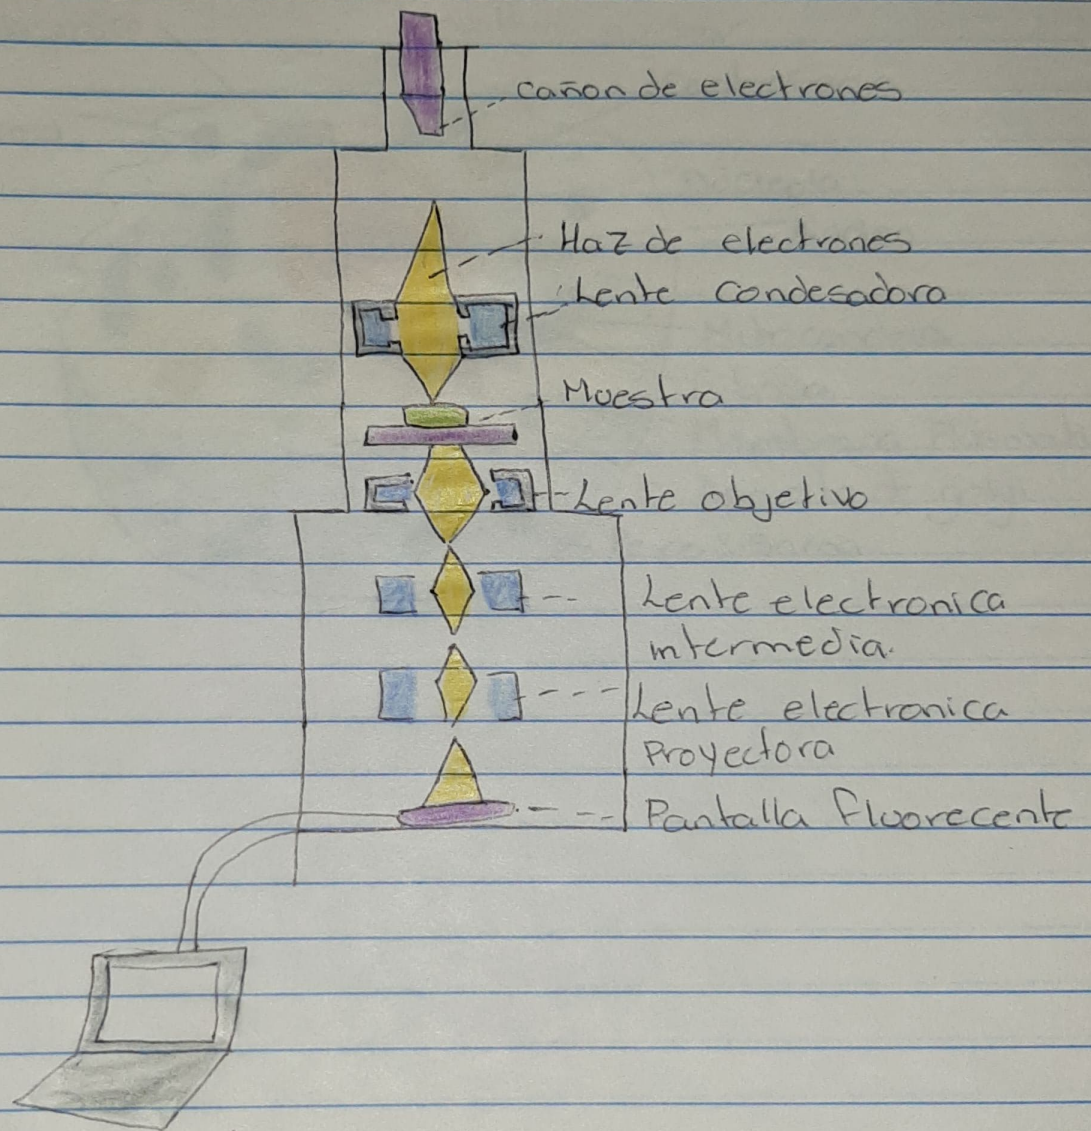 cañon de electrones
Haz de electrones
Lente Condesadora
Muestra
Lente objetivo
Lente electronica
intermedia.
Lente electronica
Proyectora
Pantalla fluorecente